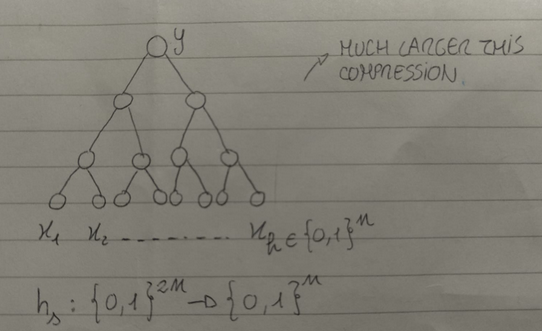 y
MUCH LARGER THIS
COMPRESSION.
x₁ x₂ --------- xₕ ∈ {0,1}ⁿ
hₛ : {0,1}²ⁿ → {0,1}ⁿ